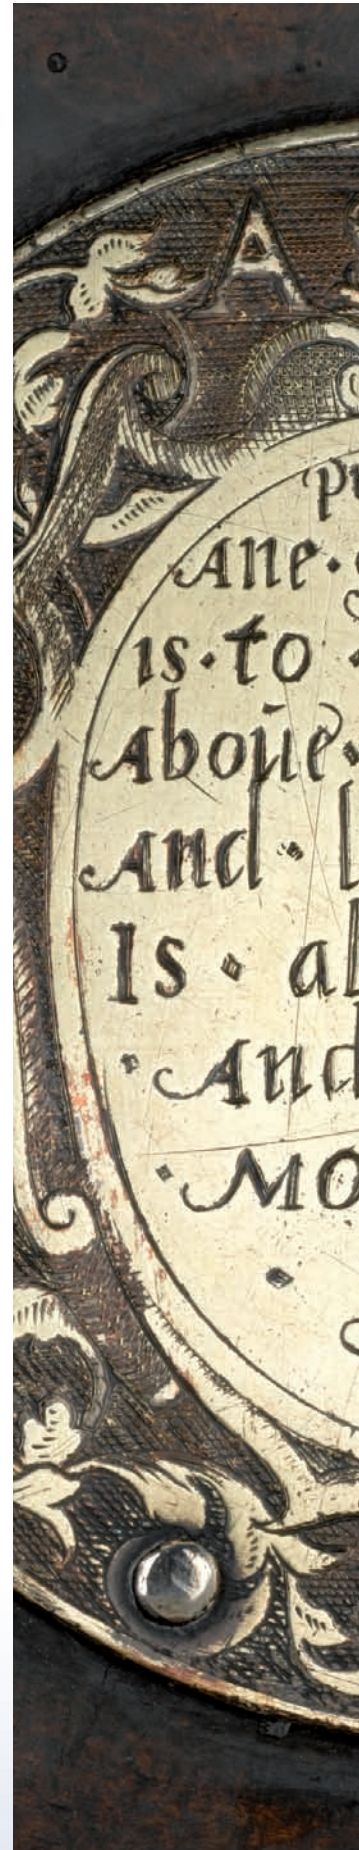 A
Ane ·
is · to ·
Aboue ·
And · l
Is · al
· And
· MO